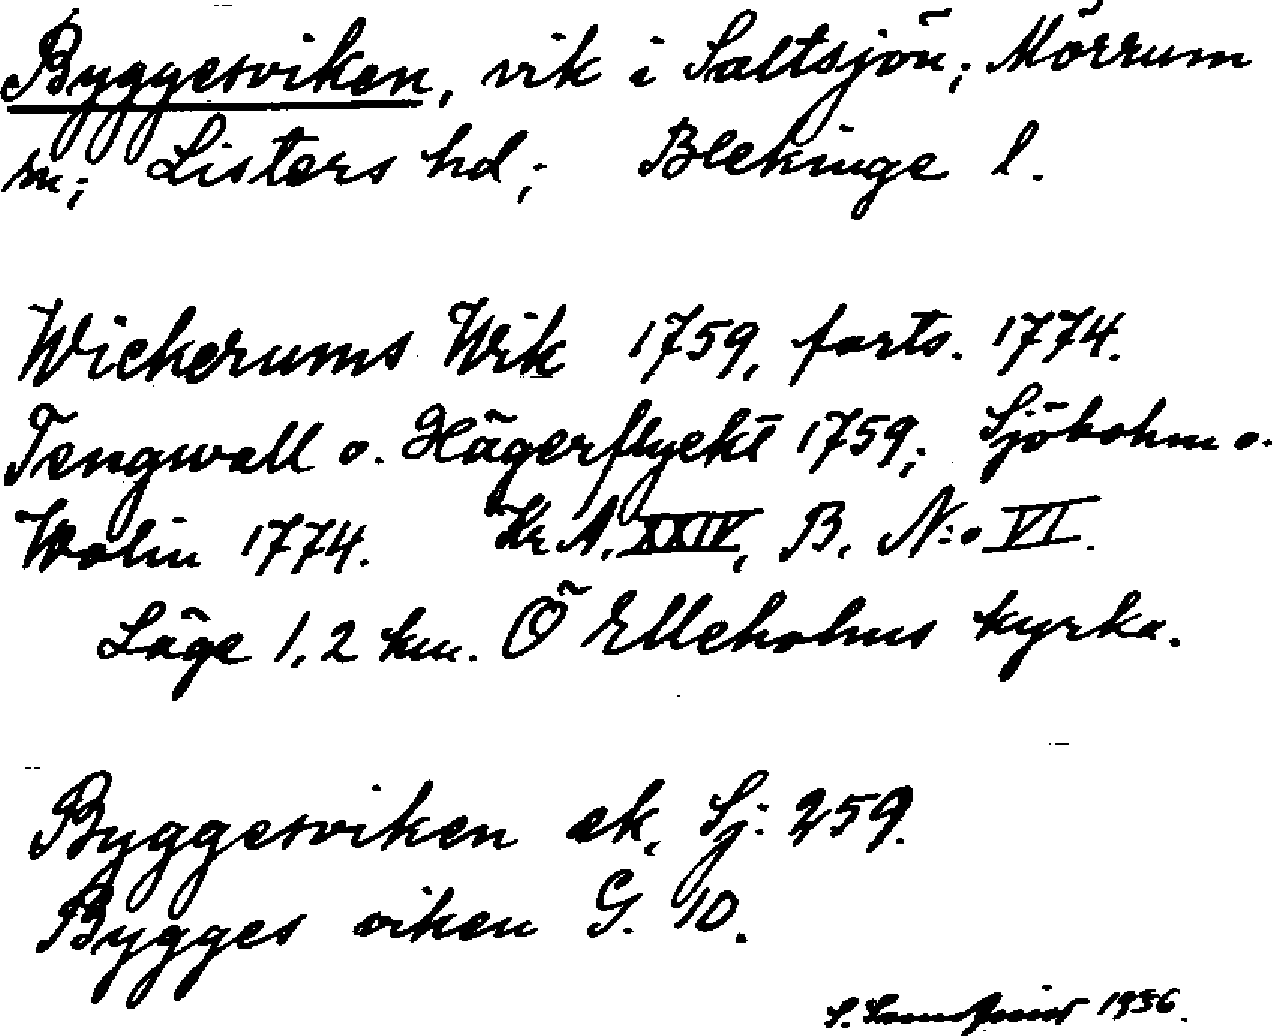 Byggesviken, vik i Saltsjön; Mörrum
sn; Listers hd; Blekinge l.
Wickerums Wik 1759, forts. 1774.
Tengwall o. Hägerflyckt 1759; Sjöbohm o.
Wolin 1774. Kr A. XXIV, B. N:o VI.
Läge 1,2 km. Ö Elleholms kyrka.
Byggesviken ek. Sj: 259.
Bygges viken G. 10.
S. 1936.